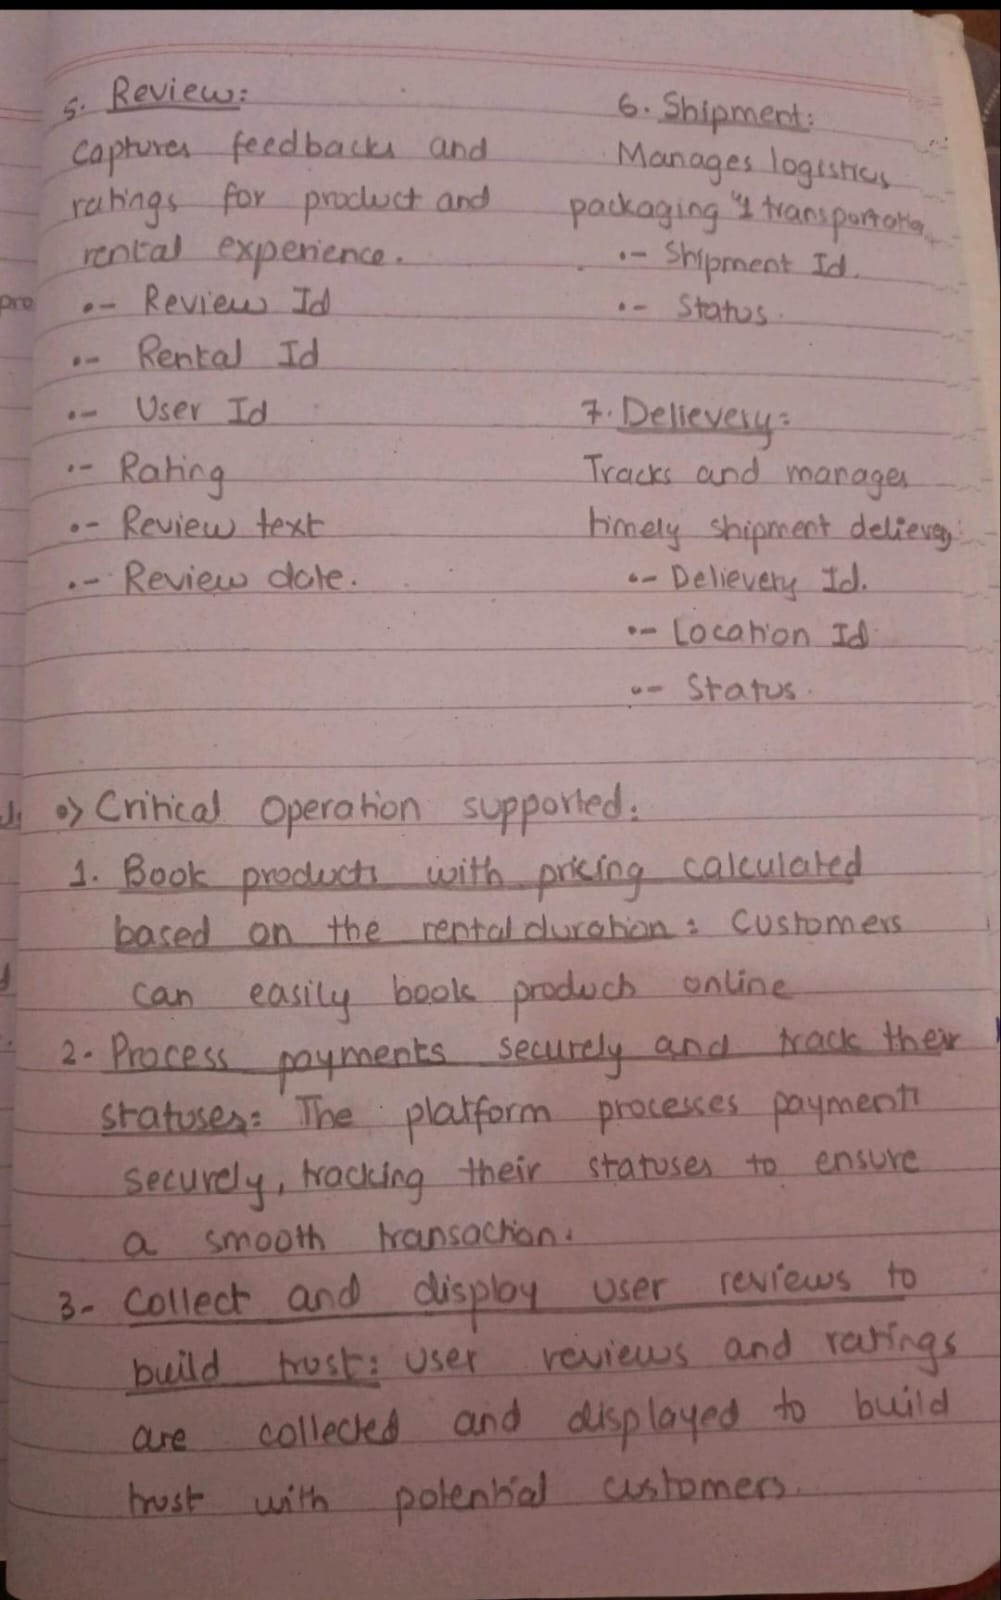 5. Review:
Captures feedbacks and
ratings for product and
rental experience.
•- Review Id
•- Rental Id
•- User Id
•- Rating
•- Review text
•- Review date.
6. Shipment:
Manages logistics
packaging
•- Shipment Id.
•- Status.
7. Delievery:
Tracks and manages
timely shipment delievery
•- Delievery Id.
•- Location Id
•- Status.
pro
•> Critical Operation supported:
1. Book products with pricing calculated
based on the rental duration: Customers
can easily book products online
2. Process payments securely and track their
statuses: The platform processes payments
securely, tracking their statuses to ensure
a smooth transaction.
3- Collect and display user reviews to
build trust: User reviews and ratings
are collected and displayed to build
trust with potential customers.